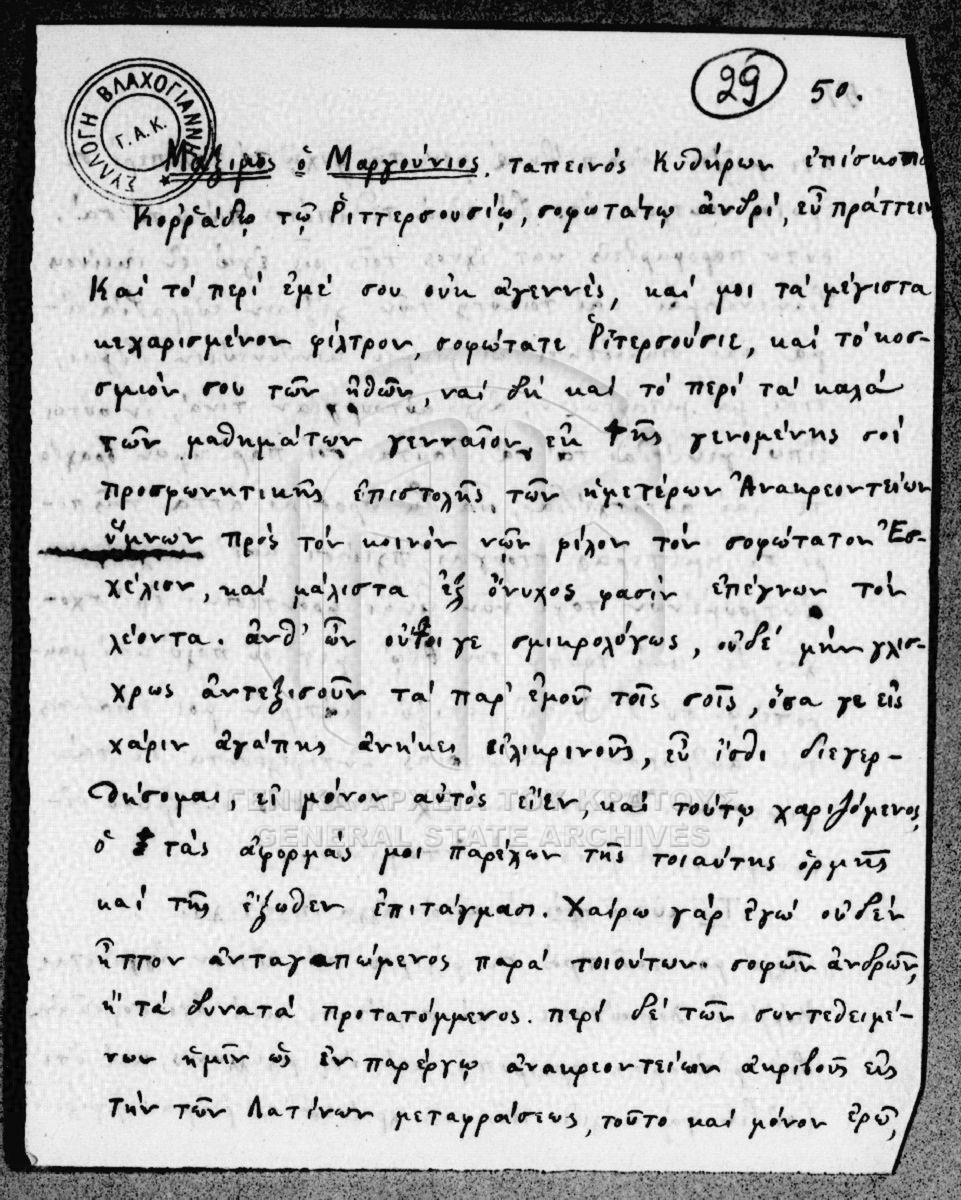 29 50.
ΣΥΛΛΟΓΗ ΒΛΑΧΟΓΙΑΝΝΗ
Γ.Α.Κ.
Μάξιμος ὁ Μαργούνιος, ταπεινός Κυθήρων ἐπίσκοπο
Κορῥάδῳ τῷ Ῥιττερσουσίῳ, σοφωτάτῳ ἀνδρί, εὖ πράττειν
Καί τό περί ἐμέ σου οὐκ ἀγεννές, καί μοι τά μέγιστα
κεχαρισμένον φίλτρον, σοφώτατε Ῥιτερσούσιε, καί τό κοσ-
σμιόν σου τῶν ἠθῶν, ναί δή καί τό περί τά καλά
τῶν μαθημάτων γενναῖον, ἐκ τῆς γενομένης σοί
προσφωνητικῆς ἐπιστολῆς τῶν ἡμετέρων Ἀνακρεοντείων
ὕμνων πρός τόν κοινόν νῷν φίλον τόν σοφώτατον Ἐσ-
χέλιον, καί μάλιστα ἐξ ὄνυχος φασίν ἐπέγνων τόν
λέοντα. ἀνθ' ὧν οὔτοι γε σμικρολόγως, οὐδέ μήν γλισ-
χρως ἀντεξισοῦν τά παρ' ἐμοῦ τοῖς σοῖς, ὅσα γε εἰς
χάριν ἀγάπης ἀνήκει εἰλικρινοῦς, εὖ ἴσθι διεγερ-
θήσομαι, εἰ μόνον αὐτός εἴεν, καί τούτῳ χαριζόμενος,
ὁ τάς ἀφορμάς μοι παρέχων τῆς τοιαύτης ὁρμῆς
καί τῆς ἔξωθεν ἐπιτάγμασι. Χαίρω γάρ ἐγώ οὐδέν
ἧττον ἀνταγαπώμενος παρά τοιούτων σοφῶν ἀνδρῶν,
ἤ τά δυνατά προτατόμμενος. περί δέ τῶν συντεθειμέ-
νων ἡμῖν ὡς ἐν παρέργῳ ἀνακρεοντείων ἀκριβοῦς εἰς
τήν τῶν Λατίνων μεταφράσεως, τοῦτο καί μόνον ἐρῶ,
ΓΕΝΙΚΑ ΑΡΧΕΙΑ ΤΟΥ ΚΡΑΤΟΥΣ
GENERAL STATE ARCHIVES